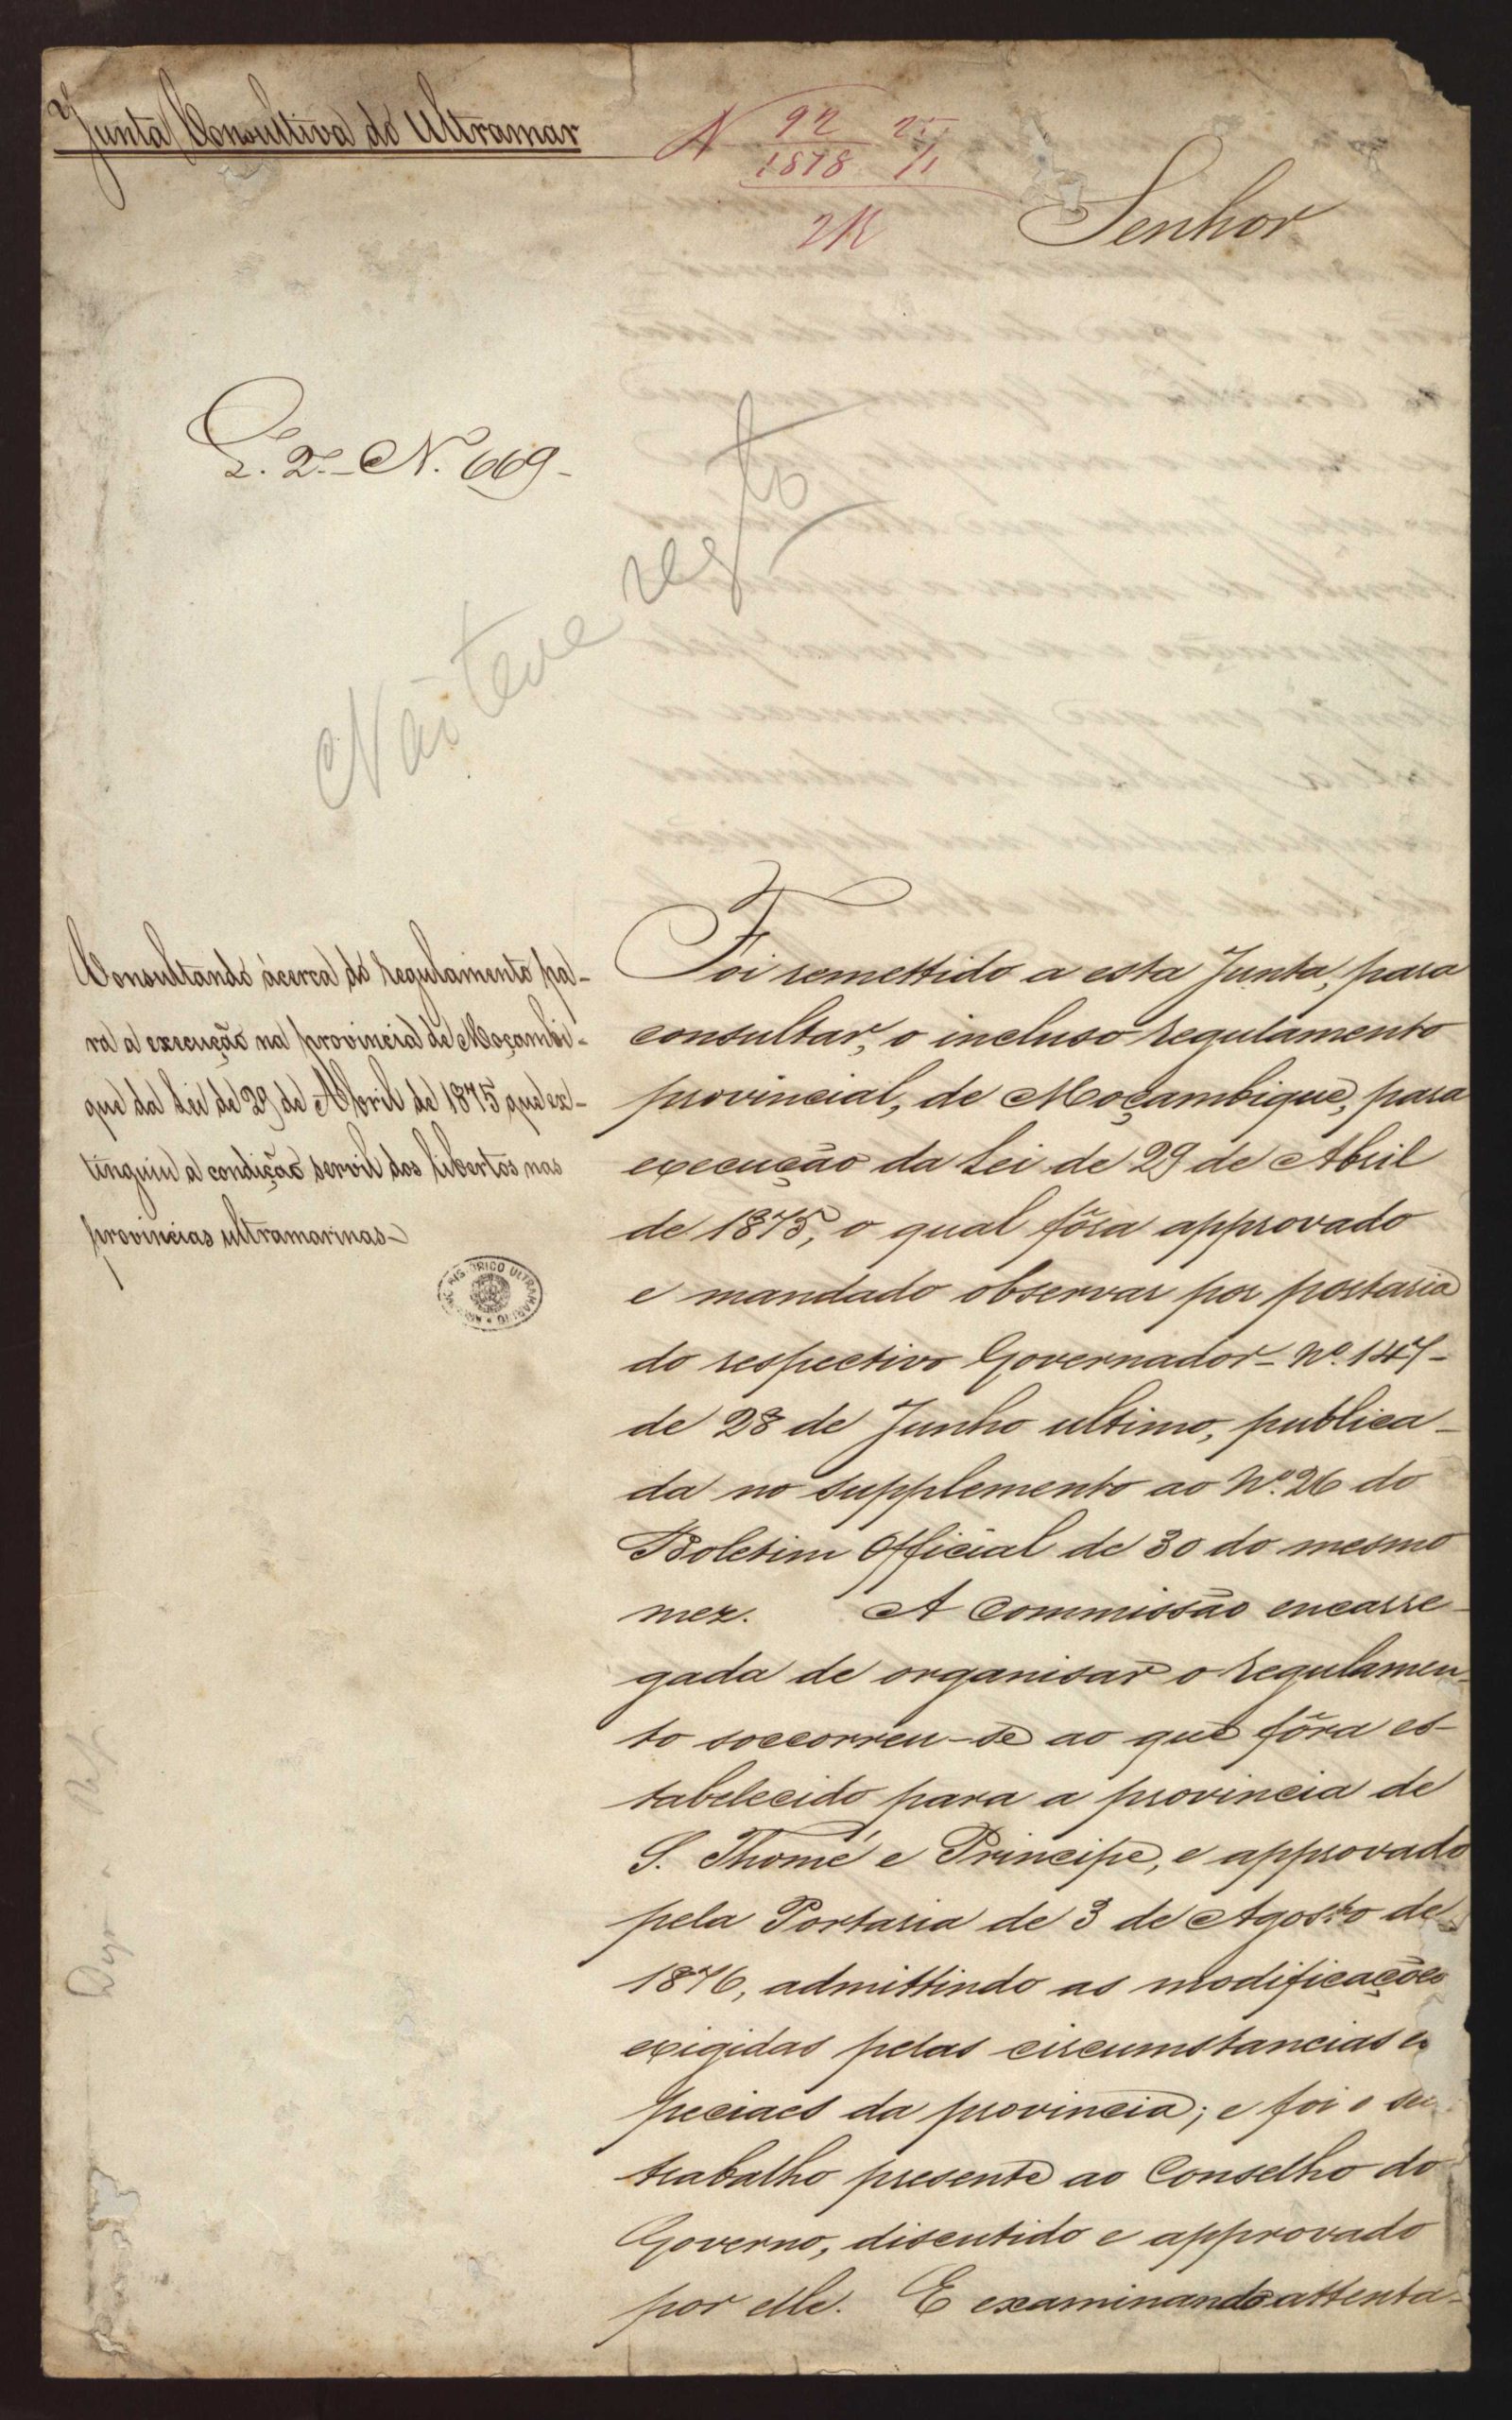 Junta Consultiva do Ultramar
N 92 25
1878 11
2R
Senhor
L. 2.º - N. 669 -
Não teve regto
Consultando ácerca do Regulamento pa-
ra a execução na provincia de Moçambi-
que da Lei de 29 de Abril de 1875 que ex-
tinguiu a condição servil dos libertos nas
provincias ultramarinas -
HISTORICO ULTRAMARINO
Foi remettido a esta Junta, para
consultar, o incluso regulamento
provincial, de Moçambique, para
execução da Lei de 29 de Abril
de 1875, o qual fôra approvado
e mandado observar por portaria
do respectivo Governador - Nº. 147 -
de 28 de Junho ultimo, publica-
da no supplemento ao Nº. 26 do
Boletim Official de 30 do mesmo
mez. A Commissão encarre-
gada de organisar o regulamen-
to soccorreu-se ao que fôra es-
tabelecido para a provincia de
S. Thomé e Principe, e approvado
pela Portaria de 3 de Agosto de
1876, admittindo as modificações
exigidas pelas circumstancias es
peciaes da provincia; e foi o seu
trabalho presente ao Conselho do
Governo, discutido e approvado
por elle. E examinando attenta-